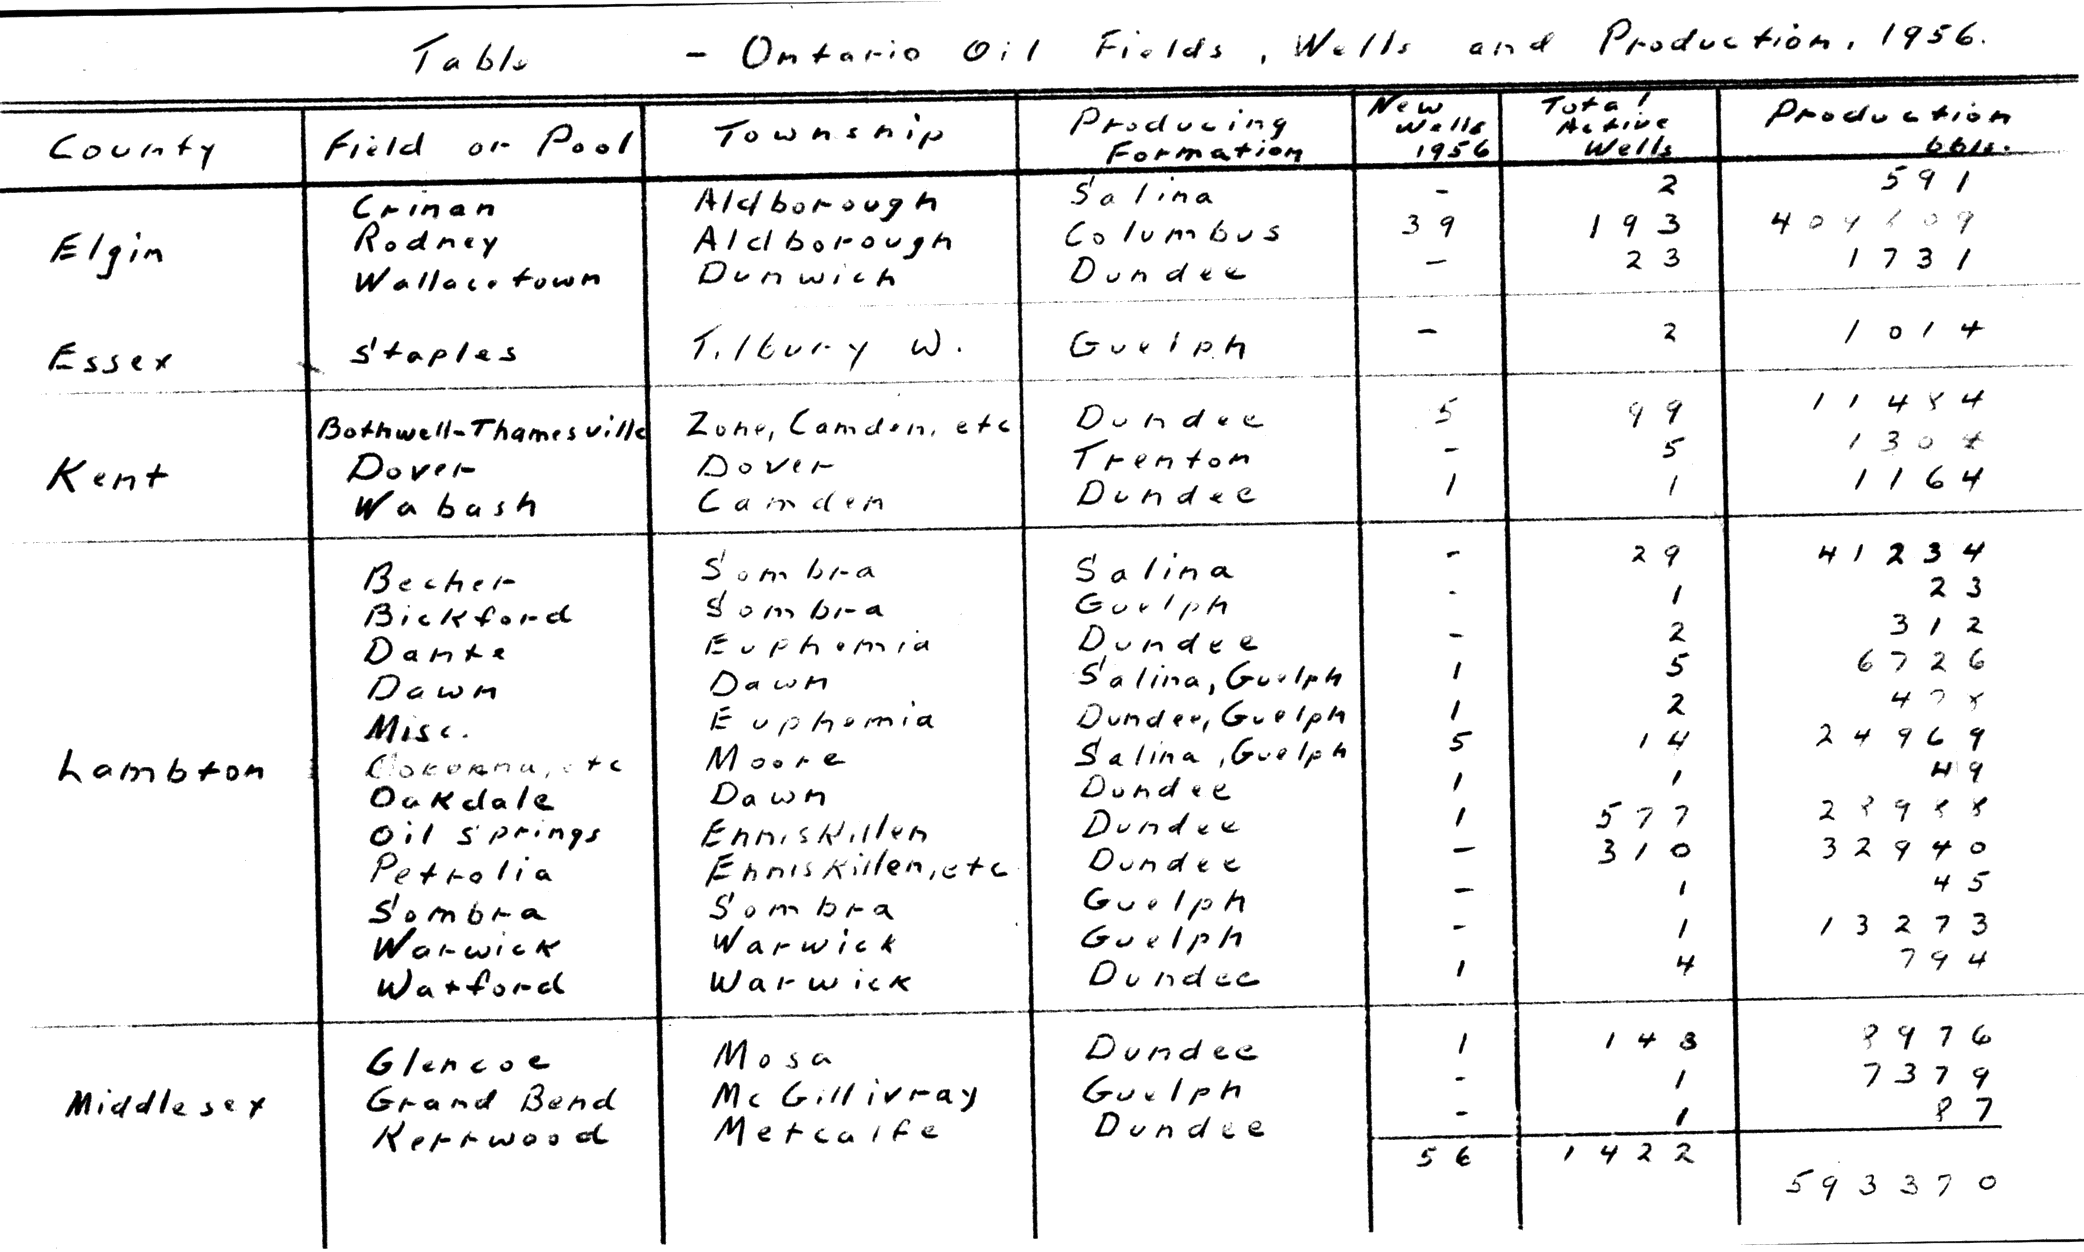 Table - Ontario Oil Fields, Wells and Production, 1956.
County Field or Pool Township Producing Formation New Wells 1956 Total Active Wells Production bbls.
Elgin Crinan Aldborough Salina - 2 591
Rodney Aldborough Columbus 39 193 409809
Wallacetown Dunwich Dundee - 23 1731
Essex Staples Tilbury W. Guelph - 2 1014
Kent Bothwell-Thamesville Zone, Camden, etc Dundee 5 99 11484
Dover Dover Trenton - 5 1304
Wabash Camden Dundee 1 1 1164
Lambton Becher Sombra Salina - 29 41234
Bickford Sombra Guelph - 1 23
Dante Euphemia Dundee - 2 312
Dawn Dawn Salina, Guelph 1 5 6726
Misc. Euphemia Dundee, Guelph 1 2 478
Corunna, etc Moore Salina, Guelph 5 14 24969
Oakdale Dawn Dundee 1 1 49
Oil Springs Enniskillen Dundee 1 577 28988
Petrolia Enniskillen, etc Dundee - 310 32940
Sombra Sombra Guelph - 1 45
Warwick Warwick Guelph - 1 13273
Watford Warwick Dundee 1 4 794
Middlesex Glencoe Mosa Dundee 1 148 8976
Grand Bend McGillivray Guelph - 1 7379
Kerrwood Metcalfe Dundee - 1 87
56 1422
593370